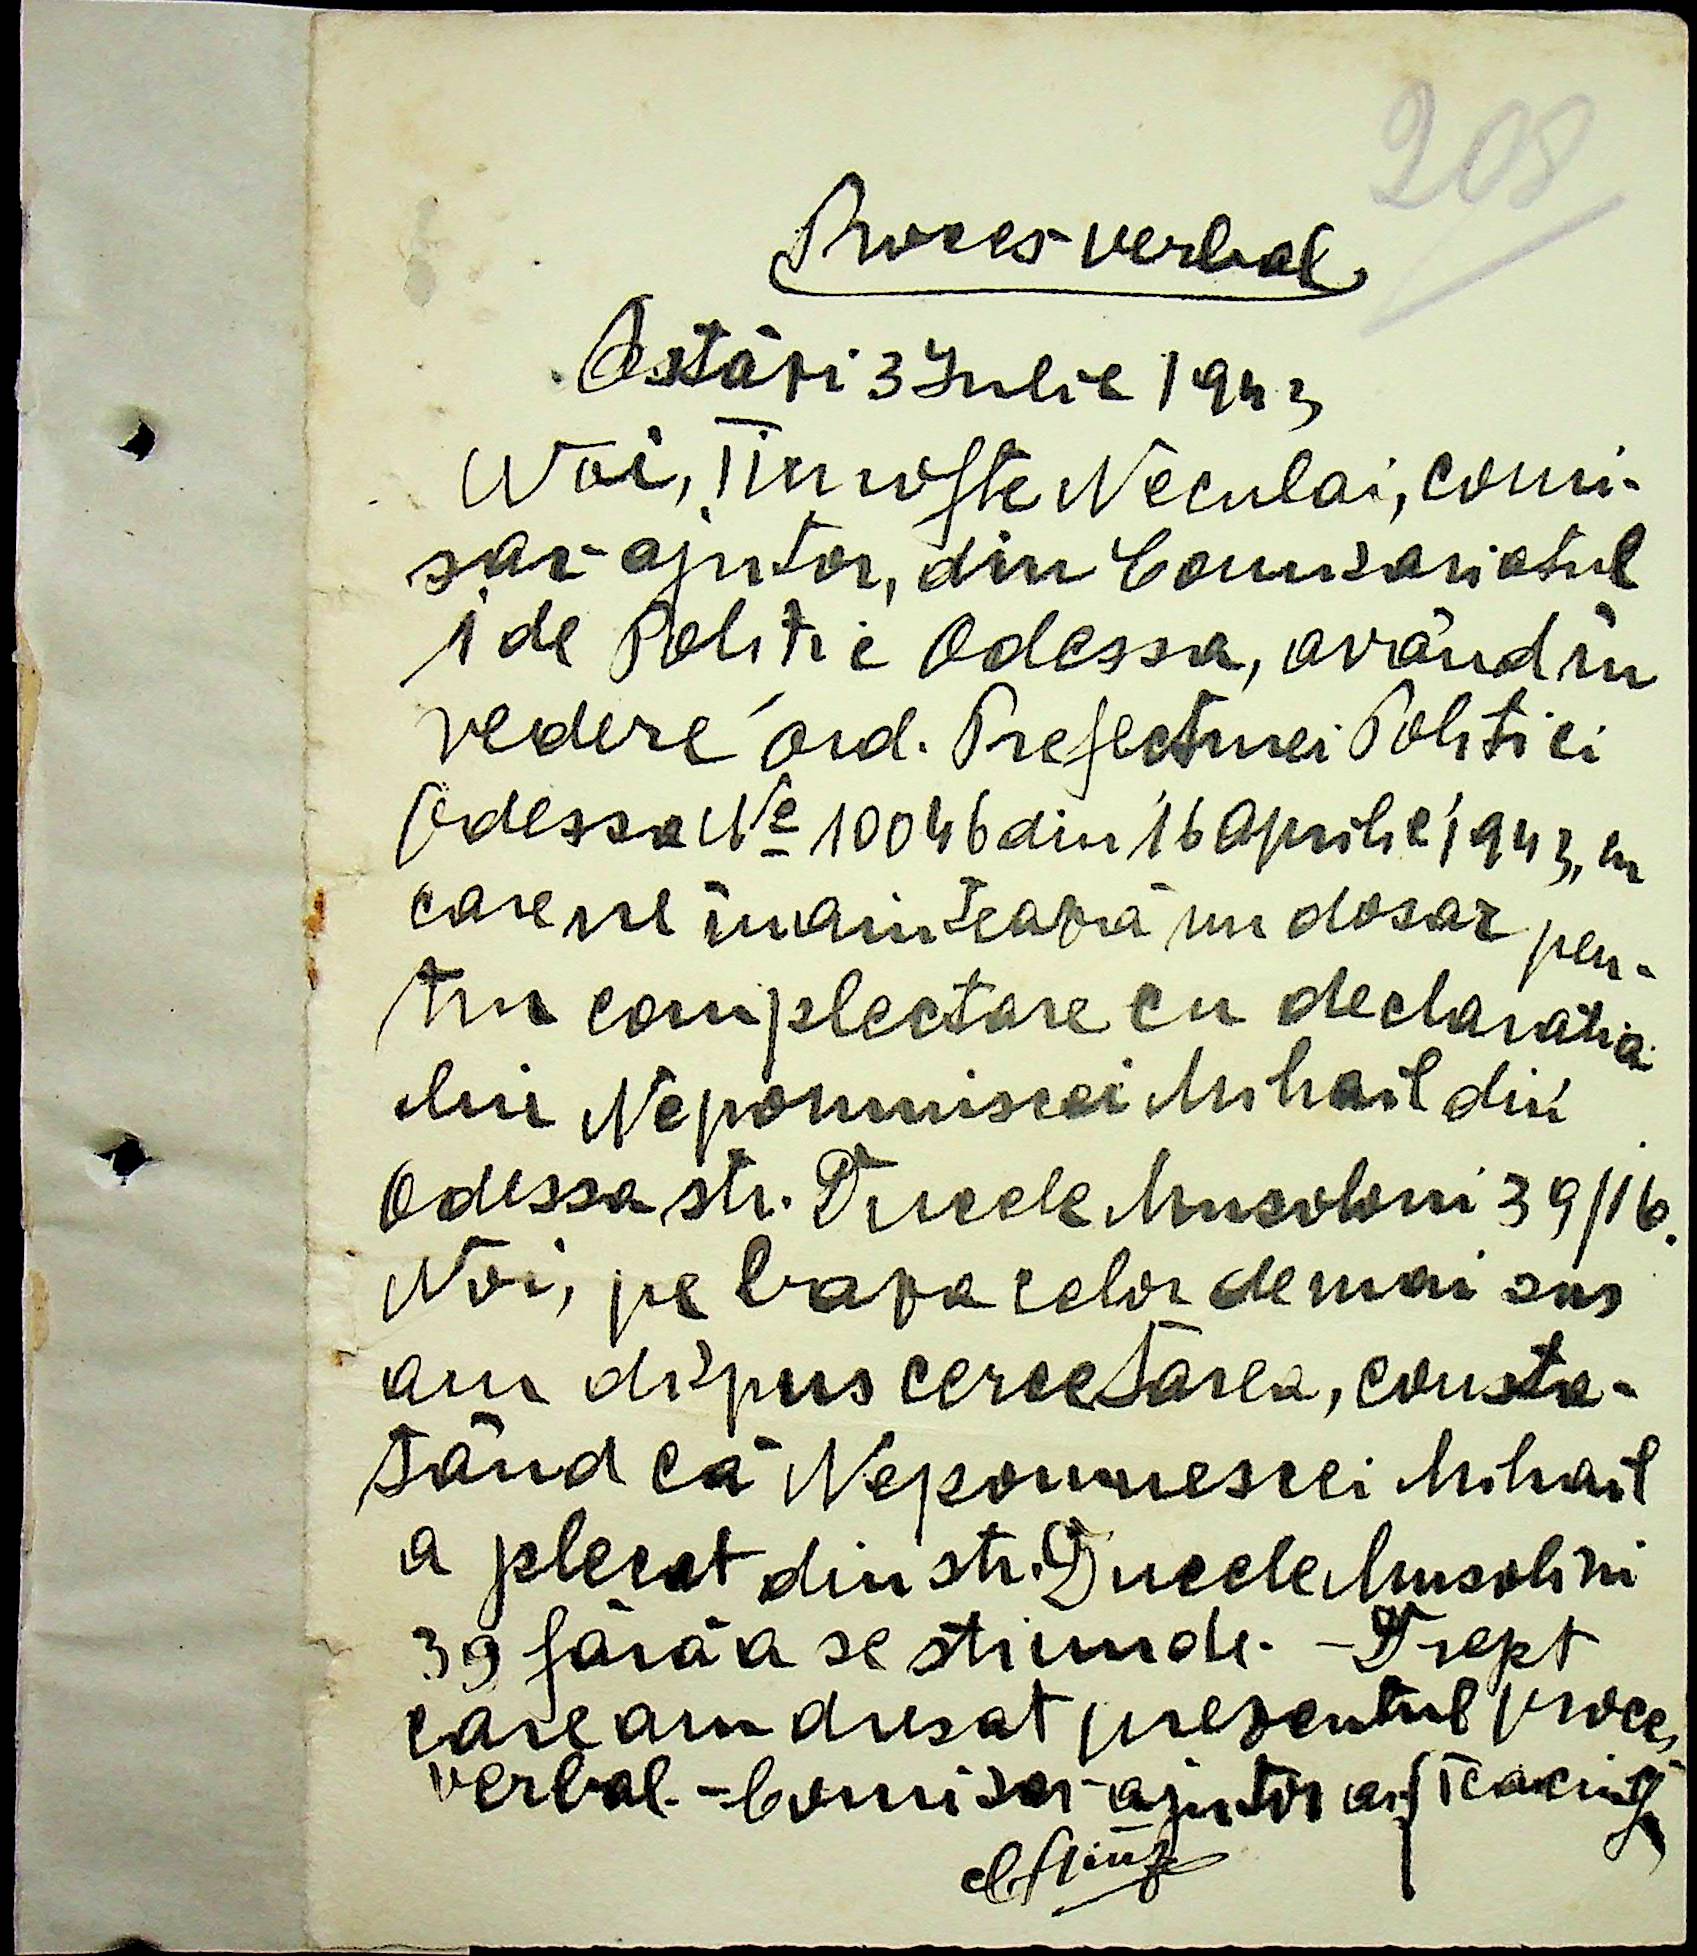 208
Proces-verbal
Astăzi 3 Iulie 1943
Noi, Timofte Neculai, comi-
sar-ajutor, din Comisariatul
1 de Politie Odessa, avănd în
vedere ord. Prefecturei Politiei
Odessa No 10046 din 16 Aprilie 1943, cu
care ne inaintează un dosar pen-
tru complectare cu declaratia
lui Nepomniscei Mihail din
Odessa str. Ducele Musolini 39/16.
Noi, pe baza celor de mai sus
am dispus cercetarea, consta-
tănd că Nepomnescei Mihail
a plecat din str. Ducele Musolini
39 fără a se sti unde. - Drept
care am dresat prezentul proces
verbal. - Comisar-ajutor